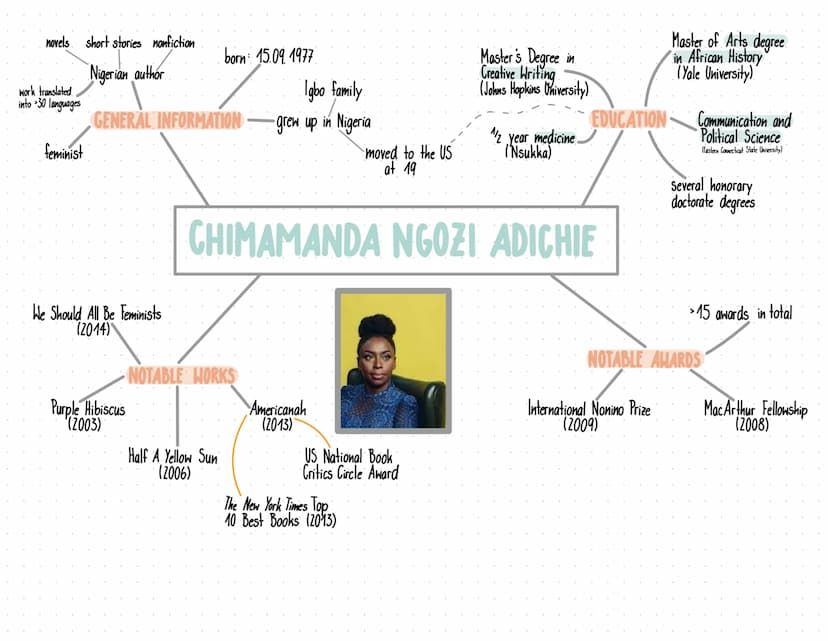 novels short stories nonfiction
Nigerian author
work translated
into >30 languages
GENERAL INFORMATION
feminist
born: 15.09.1977
Igbo family
grew up in Nigeria
moved to the US
at 19
Master's Degree in
Creative Writing
(Johns Hopkins University)
1/2 year medicine
(Nsukka)
EDUCATION
Master of Arts degree
in African History
(Yale University)
Communication and
Political Science
(Eastern Connecticut State University)
several honorary
doctorate degrees
CHIMAMANDA NGOZI ADICHIE
We Should All Be Feminists
(2014)
NOTABLE WORKS
Purple Hibiscus
(2003)
Half A Yellow Sun
(2006)
Americanah
(2013)
US National Book
Critics Circle Award
The New York Times Top
10 Best Books (2013)
>15 awards in total
NOTABLE AWARDS
International Nonino Prize
(2009)
MacArthur Fellowship
(2008)